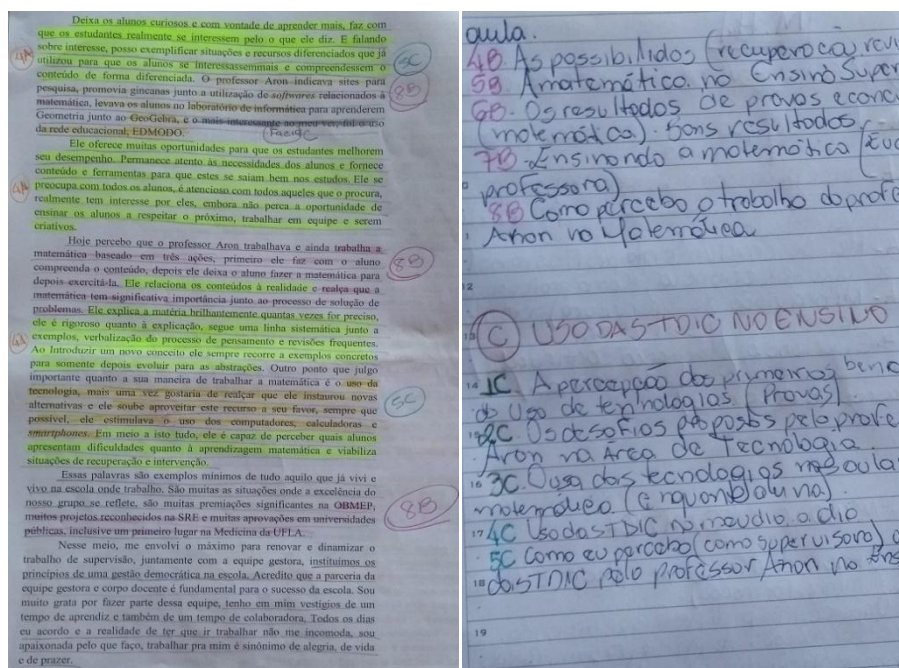 Deixa os alunos curiosos e com vontade de aprender mais, faz com
que os estudantes realmente se interessem pelo o que ele diz. E falando
sobre interesse, posso exemplificar situações e recursos diferenciados que já
utilizou para que os alunos se interessassemmais e compreendessem o
conteúdo de forma diferenciada. O professor Aron indicava sites para
pesquisa, promovia gincanas junto a utilização de softwares relacionados à
matemática, levava os alunos no laboratório de informática para aprenderem
Geometria junto ao GeoGebra, e o mais interessante ao meu ver, foi o uso
da rede educacional, EDMODO.
Ele oferece muitas oportunidades para que os estudantes melhorem
seu desempenho. Permanece atento às necessidades dos alunos e fornece
conteúdo e ferramentas para que estes se saiam bem nos estudos. Ele se
preocupa com todos os alunos, é atencioso com todos aqueles que o procura,
realmente tem interesse por eles, embora não perca a oportunidade de
ensinar os alunos a respeitar o próximo, trabalhar em equipe e serem
criativos.
Hoje percebo que o professor Aron trabalhava e ainda trabalha a
matemática baseado em três ações, primeiro ele faz com o aluno
compreenda o conteúdo, depois ele deixa o aluno fazer a matemática para
depois exercitá-la. Ele relaciona os conteúdos à realidade e realça que a
matemática tem significativa importância junto ao processo de solução de
problemas. Ele explica a matéria brilhantemente quantas vezes for preciso,
ele é rigoroso quanto à explicação, segue uma linha sistemática junto a
exemplos, verbalização do processo de pensamento e revisões frequentes.
Ao Introduzir um novo conceito ele sempre recorre a exemplos concretos
para somente depois evoluir para as abstrações. Outro ponto que julgo
importante quanto a sua maneira de trabalhar a matemática é o uso da
tecnologia, mais uma vez gostaria de realçar que ele instaurou novas
alternativas e ele soube aproveitar este recurso a seu favor, sempre que
possível, ele estimulava o uso dos computadores, calculadoras e
smartphones. Em meio a isto tudo, ele é capaz de perceber quais alunos
apresentam dificuldades quanto à aprendizagem matemática e viabiliza
situações de recuperação e intervenção.
Essas palavras são exemplos mínimos de tudo aquilo que já vivi e
vivo na escola onde trabalho. São muitas as situações onde a excelência do
nosso grupo se reflete, são muitas premiações significantes na OBMEP,
muitos projetos reconhecidos na SRE e muitas aprovações em universidades
públicas, inclusive um primeiro lugar na Medicina da UFLA.
Nesse meio, me envolvi o máximo para renovar e dinamizar o
trabalho de supervisão, juntamente com a equipe gestora, instituímos os
princípios de uma gestão democrática na escola. Acredito que a parceria da
equipe gestora e corpo docente é fundamental para o sucesso da escola. Sou
muito grata por fazer parte dessa equipe, tenho em mim vestígios de um
tempo de aprendiz e também de um tempo de colaboradora. Todos os dias
eu acordo e a realidade de ter que ir trabalhar não me incomoda, sou
apaixonada pelo que faço, trabalhar pra mim é sinônimo de alegria, de vida
e de prazer.
4A
5C
8B
4A
8B
4A
5C
8B
aula.
4B. As possibilidos (recuperoca,
5B A matemático no Ensino Super
6B. Os resultados de provas
(matemática). Bons resultados.
7B. Ensinando a matemática
professora)
8B Como percebo o trabalho do profe
Aron na Matemática
12
C USO DAS TDIC NO ENSINO
14 1C A percepção dos primeiros
do Uso de tecnologias (Provas)
2C Os desafios propostos pelo profe
Aron na Área de Tecnologia
16 3C O uso das tecnologias na aula
matemática (enquanto aluna).
17 4C Uso das TDIC no meu dia a dia
5C Como eu percebo (como supervisora)
18 das TDIC pelo professor Aron no Ens
19